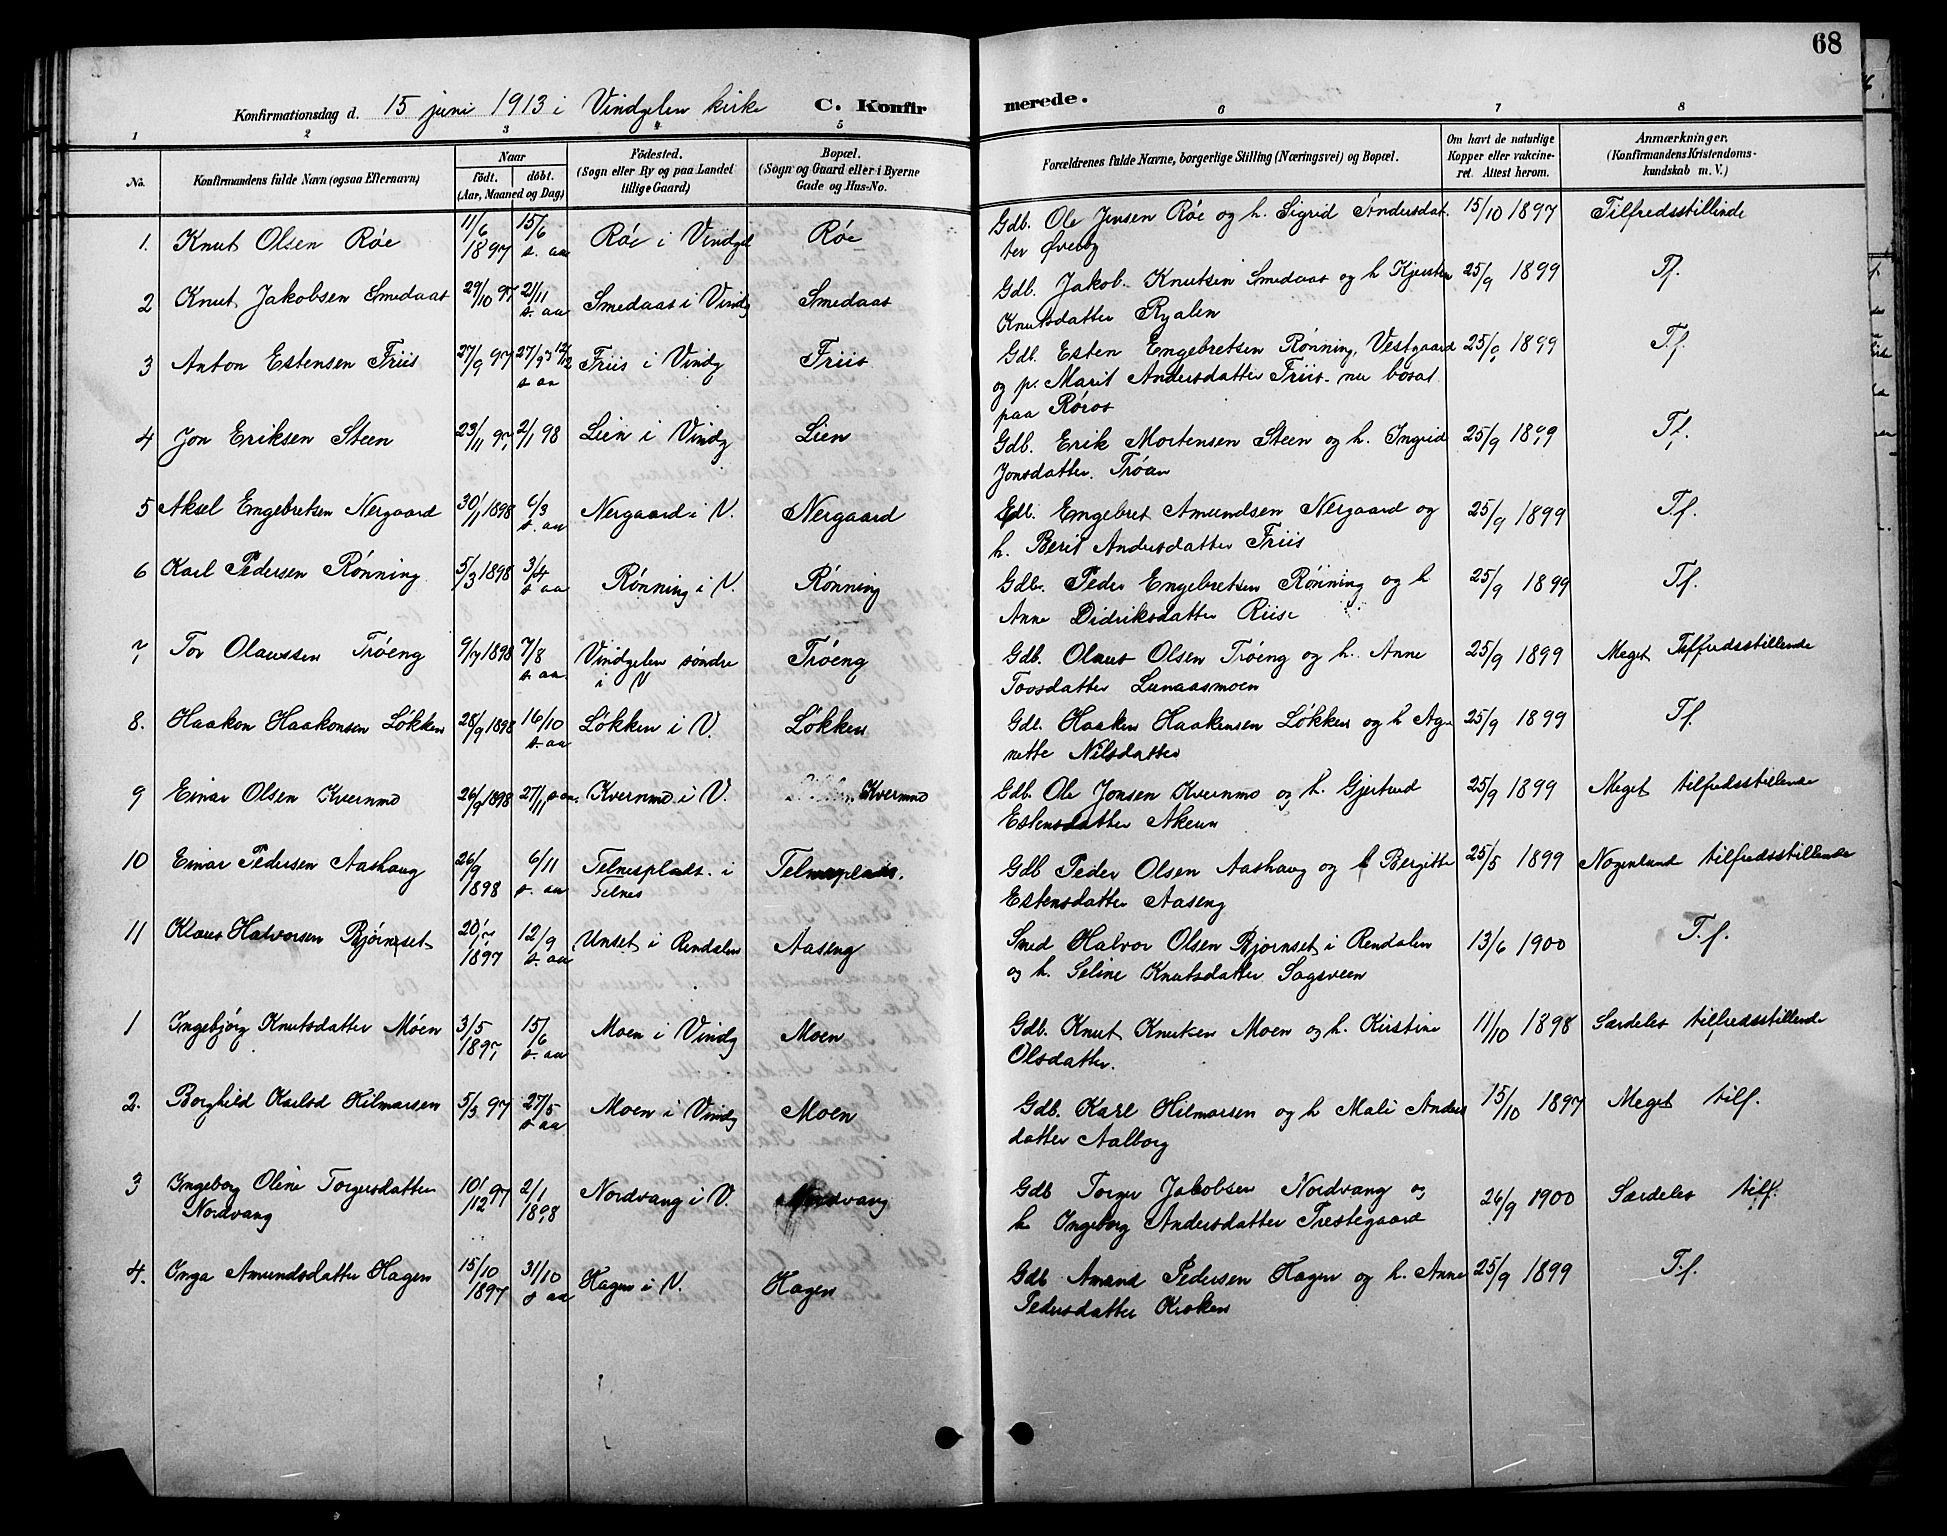 68
Konfirmationsdag d. 15 juni 1913 i Vindgelen kirke C. Konfirmerede.
1 2 3 4 5 6 7 8
No. Konfirmandens fulde Navn (ogsaa Efternavn) Naar født. døbt. (Aar, Maaned og Dag) Fødested. (Sogn eller By og paa Landet tillige Gaard) Bopæl. (Sogn og Gaard eller i Byerne Gade og Hus-No. Forældrenes fulde Navne, borgerlige Stilling (Næringsvei) og Bopæl. Om havt de naturlige Kopper eller vakcineret. Attest herom. Anmærkninger. (Konfirmandens Kristendomskundskab m. V.)
1. Knut Olsen Røe 11/6 1897 15/6 s. aa Røe i Vindgel Røe Gdb. Ole Jensen Røe og h. Sigrid Andersdatter Øveby 15/10 1897 Tilfredsstillende
2 Knut Jakobsen Smedaas 29/10 97 21/11 s. aa Smedaas i Vindg Smedaas Gdb. Jakob Knutsen Smedaas og h Kjersten Knutsdatter Ryalen 25/9 1899 Tf.
3 Anton Estensen Friis 27/9 97 27/9 97 12/12 s aa Friis i Vindg Friis Gdb. Esten Engebretsen Rønning, Vestgaard og p. Marit Andersdatter Friis nu bosat paa Røros 25/9 1899 Tf.
4 Jon Eriksen Steen 23/11 97 2/1 98 Lien i Vindg Lien Gdb. Erik Mortensen Steen og h. Ingrid Jonsdatter Trøan 25/9 1899 Tf.
5 Aksel Engebretsen Nergaard 30/1 1898 6/3 s. aa Nergaard i V. Nergaard Gdb. Engebret Amundsen Nergaard og h. Berit Andersdatter Friis 25/9 1899 Tf.
6 Karl Pedersen Rønning 5/3 1898 3/4 s aa Rønning i V. Rønning Gdb. Peder Engebretsen Rønning og h Anne Didriksdatter Riise 25/9 1899 Tf.
7 Tor Olaussen Trøeng 9/7 1898 7/8 s. aa Vindgelen søndre i V Trøeng Gdb. Olaus Olsen Trøeng og h. Anne Torsdatter Lunaasmoen 25/9 1899 Meget Tilfredsstillende
8. Haakon Haakonsen Løkken 28/9 1898 16/10 s. aa Løkken i V. Løkken Gdb. Haaken Haakensen Løkken og h Agnette Nilsdatter 25/9 1899 Tf.
9 Einar Olsen Kvernmo 26/9 1898 27/11 s aa. Kvernmo i V. Kvernmo Gdb. Ole Jonsen Kvernmo og h. Gjertrud Estensdatter Akeun 25/9 1899 Meget tilfredsstillende
10 Einar Pedersen Aashaug 26/9 1898 6/11 s. aa Telnesplads. i Telnes Telnesplads. Gdb Peder Olsen Aashaug og h Bergitte Estensdatter Aaseng 25/5 1899 Nogenlunde tilfredsstillende
11 Klaus Halvorsen Bjørnset 20/7 1897 12/9 s. aa Unset i Rendalen Aaseng Smed Halvor Olsen Bjørnset i Rendalen og h. Seline Knutsdatter Sagsveen 13/6 1900 T.f.
1 Ingebjørg Knutsdatter Móen 3/5 1897 15/6 s. aa Moen i Vindg Moen Gdb. Knut Knutsen Moen og h. Kirstine Olsdatter. 11/10 1898 Særdeles tilfredsstillende
2. Borghild Karlsd Hilmarsen 5/3 97 27/5 s aa Moen i Vindg Moen Gdb. Karl Hilmarsen og h Mali Andersdatter Aalborg 15/10 1897 Meget tilf.
3 Ingeborg Oline Torgersdatter Nordvang 10/12 97 2/1 1898 Nordvang i V. Nordvang Gdb Torger Jakobsen Nordvang og h Ingeborg Andersdatter Trestegaard 26/9 1900 Særdeles tilf.
4. Inga Amundsdatter Hagen 15/10 1897 31/10 s aa Hagen i V. Hagen Gdb Amund Pedersen Hagen og h. Anne Pedersdatter Kroken 25/9 1899 T.f.